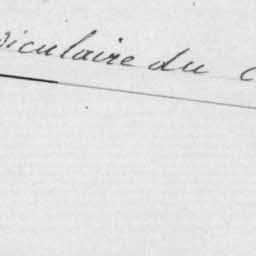 iculaire du